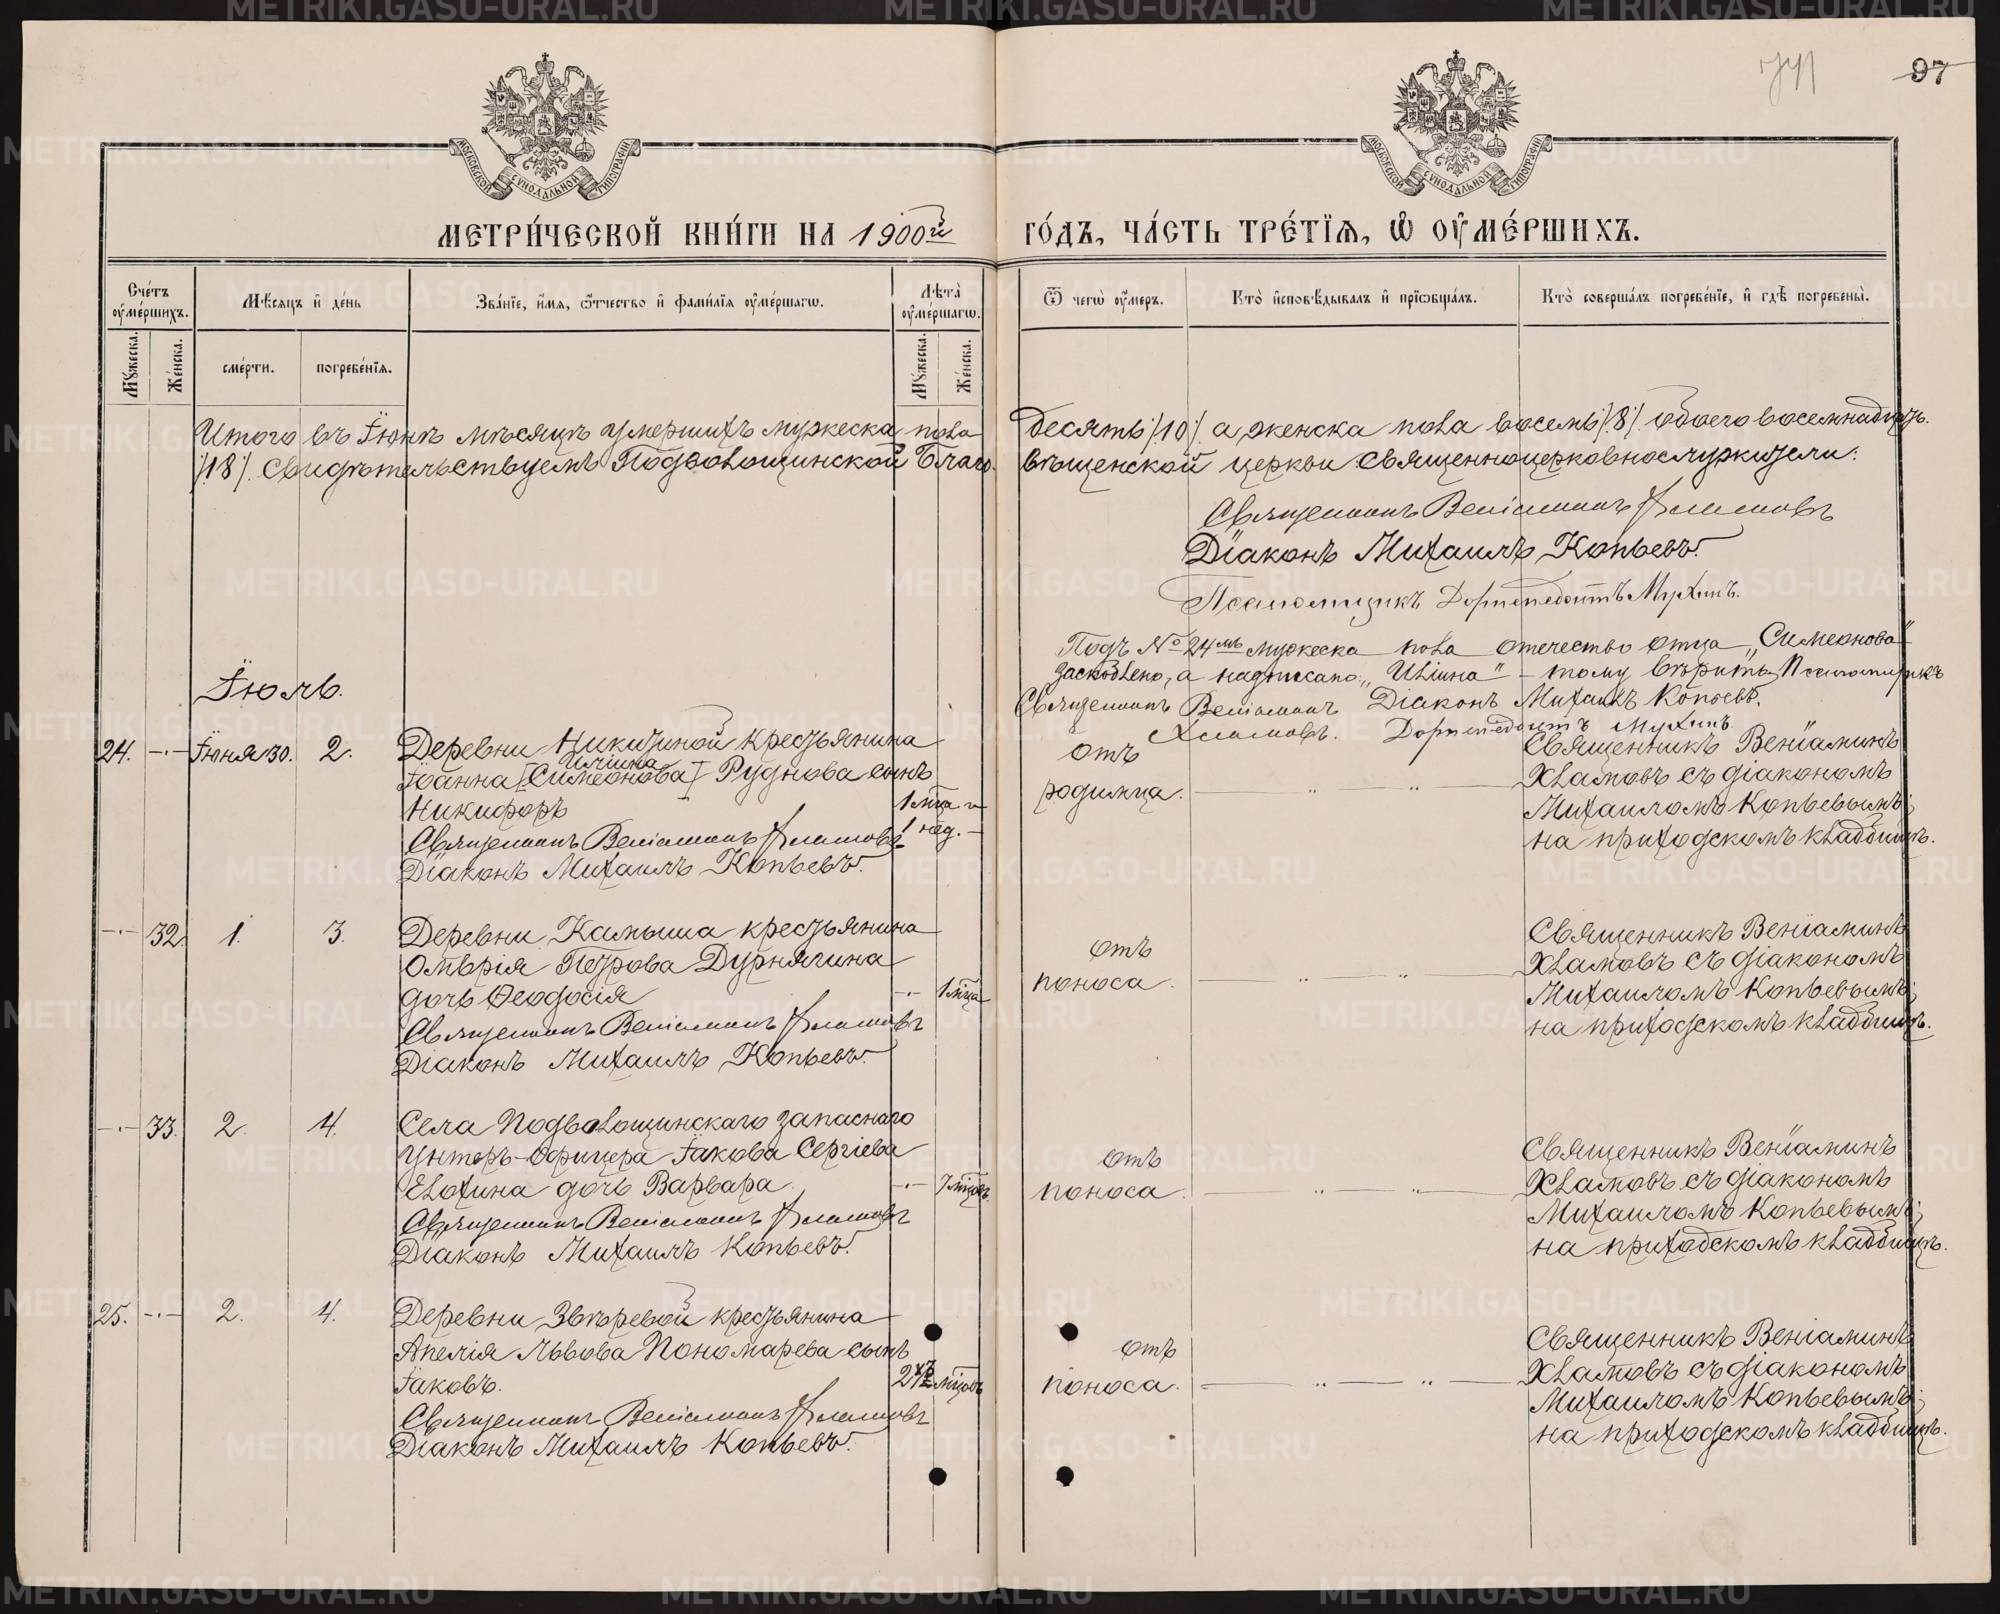 97
МОСКОВСКОЙ СѴНОДАЛЬНОЙ ТИПОГРАФІИ
МОСКОВСКОЙ СѴНОДАЛЬНОЙ ТИПОГРАФІИ
МЕТРИ́ЧЕСКОЙ КНИ́ГИ НА 1900й ГО́ДЪ, ЧА́СТЬ ТРЕ́ТЇѦ, Ѡ҆ ОУ҆МЕ́РШИХЪ.
Сче́тъ оу҆ме́ршихъ.
Мѣ́сяцъ и҆ де́нь
Зва́нїе, и҆́мя, ѻ҆́тчество и҆ фами́лїя оу҆ме́ршагѡ.
Лѣ́та оу҆ме́ршагѡ.
Ѿ чегѡ̀ оу҆́меръ.
Кто̀ и҆сповѣ́дывалъ и҆ прїѡбща́лъ.
Кто̀ соверша́лъ погребе́нїе, и҆ гдѣ̀ погребены̀.
Мꙋ́жеска.
Же́нска.
сме́рти.
погребе́нїя.
Мꙋ́жеска.
Же́нска.
Итого въ Іюнѣ мѣсяцѣ умершихъ мужеска пола десять /10/ а женска пола восемь /8/ обоего восемнадцать.
/18/. Свидѣтельствуемъ Подволошинской Благовѣщенской церкви священноцерковнослужители:
Священникъ Веніаминъ Хламовъ
Діаконъ Михаилъ Копьевъ.
Псаломщикъ Дормедонтъ Мухинъ.
Подъ № 24мъ мужеска пола отечество отца „Симеонова"
заскоблено, а надписано „Иліина" – тому вѣрить, Псаломщикъ
Священникъ Веніаминъ Діаконъ Михаилъ Копьевъ.
Хламовъ. Дормедонтъ Мухинъ.
Іюль.
24. –·– Іюня 30. 2.
Деревни Никитиной крестьянина
Иліина
Іоанна [Симеонова] Руднова сынъ
Никифоръ
1 мца и
1 нед. –
Священникъ Веніаминъ Хламовъ
Діаконъ Михаилъ Копьевъ.
отъ
родимца.
Священникъ Веніаминъ
Хламовъ съ діакономъ
Михаиломъ Копьевымъ;
на приходскомъ кладбищѣ.
–·– 32. 1. 3.
Деревни Камыша крестьянина
Омврія Петрова Дурнягина
дочь Ѳеодосія
–·– 1 мца
Священникъ Веніаминъ Хламовъ
Діаконъ Михаилъ Копьевъ.
отъ
поноса.
Священникъ Веніаминъ
Хламовъ съ діакономъ
Михаиломъ Копьевымъ;
на приходскомъ кладбищѣ.
–·– 33. 2. 4.
Села Подволошинскаго запаснаго
унтеръ-офицера Іакова Сергіева
Елохина дочь Варвара.
–·– 7 мцовъ
Священникъ Веніаминъ Хламовъ
Діаконъ Михаилъ Копьевъ.
отъ
поноса.
Священникъ Веніаминъ
Хламовъ съ діакономъ
Михаиломъ Копьевымъ;
на приходскомъ кладбищѣ.
25. –·– 2. 4.
Деревни Звѣревой крестьянина
Апелія Львова Пономарева сынъ
Іаковъ.
мцовъ
Священникъ Веніаминъ Хламовъ
Діаконъ Михаилъ Копьевъ.
отъ
поноса.
Священникъ Веніаминъ
Хламовъ съ діакономъ
Михаиломъ Копьевымъ;
на приходскомъ кладбищѣ.
METRIKI.GASO-URAL.RU